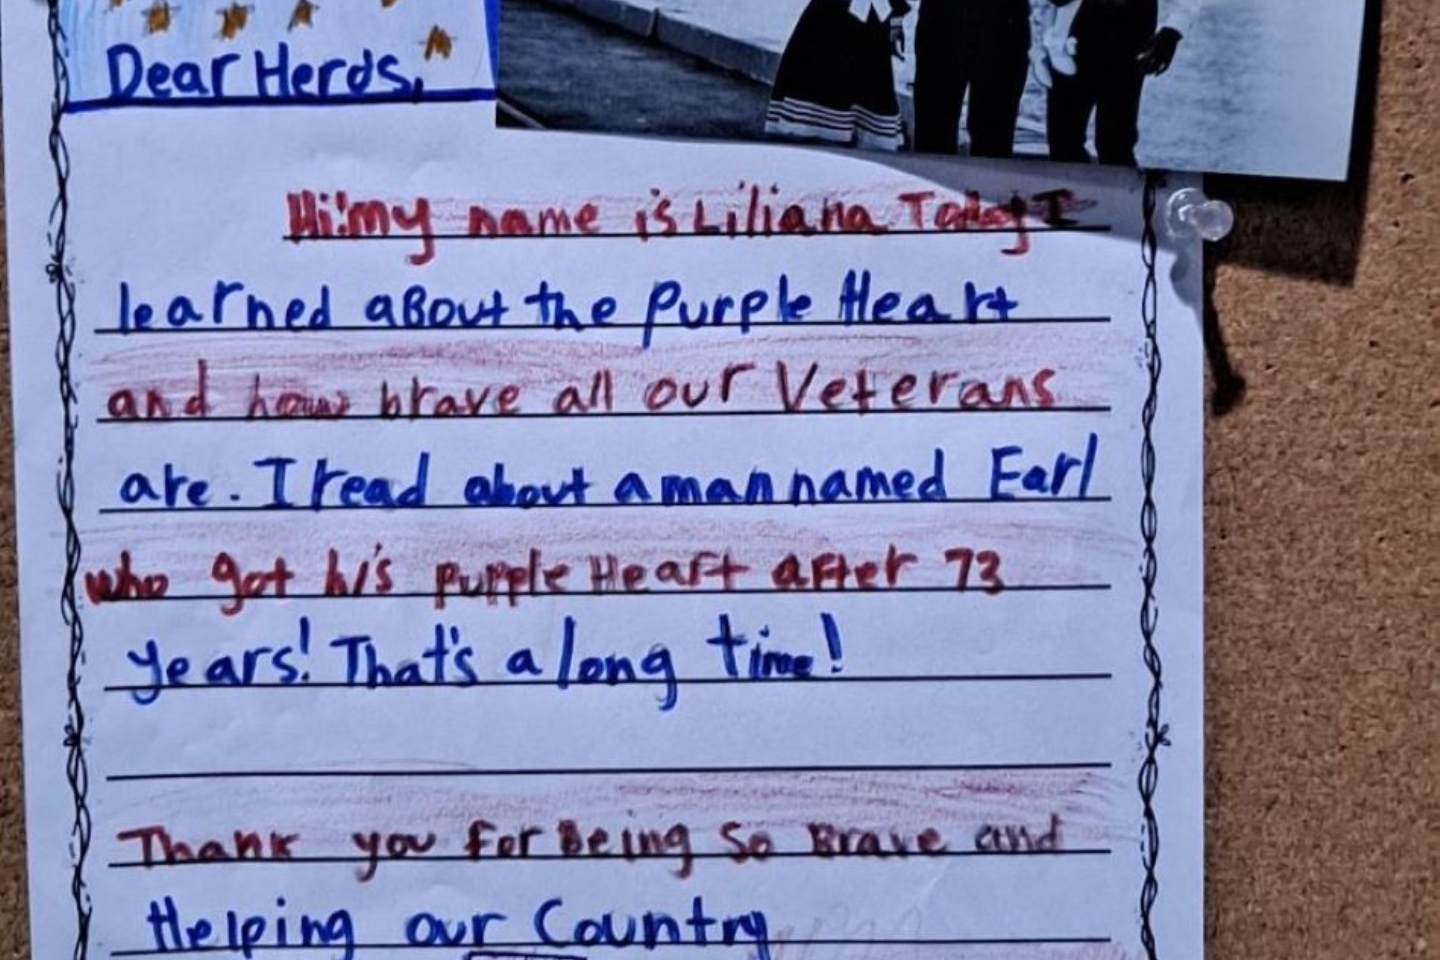 Dear Heros,
Hi! my name is Liliana Today I
learned aBout the Purple Heart
and how brave all our Veterans
are. I read about a man named Earl
who got his purple Heart after 73
years! That's a long time!
Thank you for Being So Brave and
Helping our Country